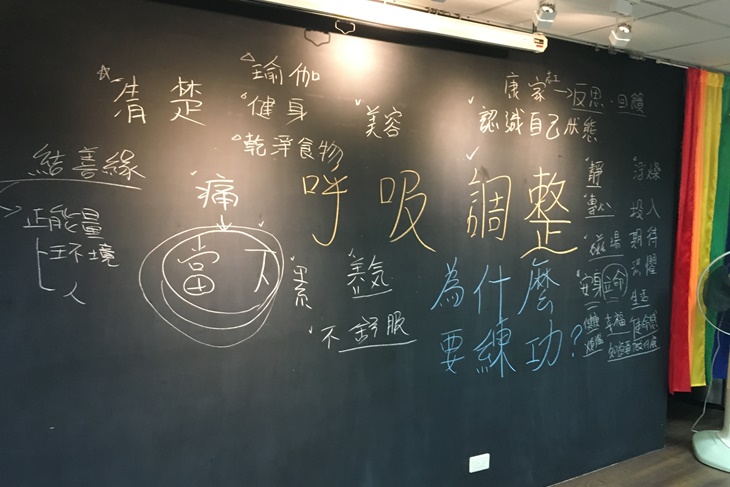 清楚
瑜伽
健身
乾淨食物
美容
康家
紅
→反思·回饋
認識自己狀態
結善緣
正能量
環境
人
痛
當下
累
養氣
不舒服
呼吸調整
為什麼
要練功?
靜
專心
投入
磁場
期待
恐懼
安身立命
生活
幸福
使命感